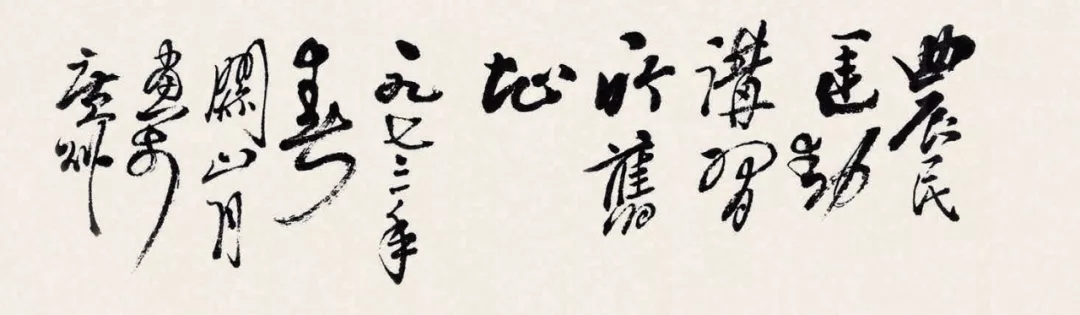 農民
運動
講習
所舊
址
一九七三年
春
關山月
畫於
廣州